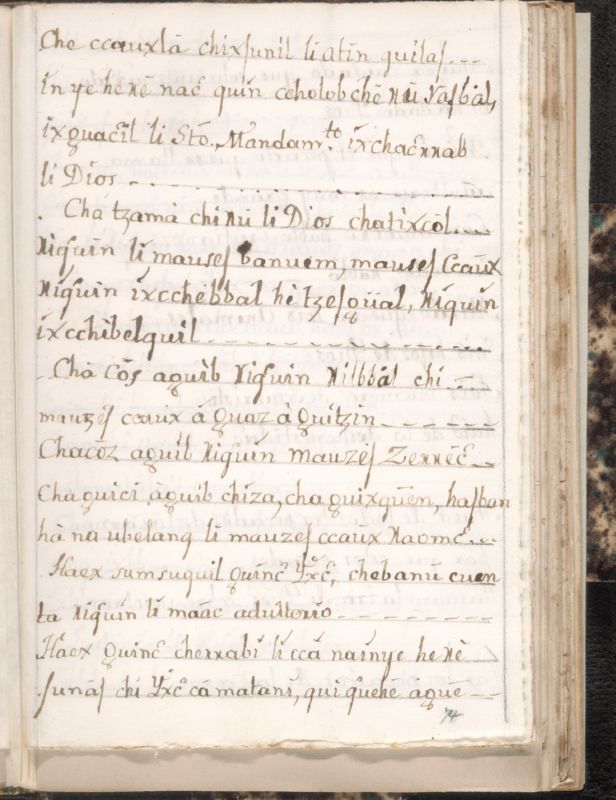 Che ccauxlâ chixsunil li atin quilas ---
in ye he rê naĉ quin ccholobchê nú Yasbal,
ixguaĉîl li Stô. Mandam.to ixchaĉrrab
li Dios - - - - -
. Chá tzamà chi nú li Dios chatixcól ---
Niquin li mauses banuem, mauses Ccaux
Niquin ixcchebbal hê tzesouial, Niquin
ixcchibelquil - - - - -
. Chà Cós aguib Niquin Nilbbal chi ---
mauzes ccaux â Quaz â Quitzin - - - - -
Chacôz aguib Niquin mauzes Zerrêĉ --
Chà guici àguib chiza, cha guixquen, hasban
hà na ubelanq li mauzes ccaux Naomĉ --
Haex sumsuquil Quinĉ Yxĉ, chebanú cuen
ta Niquin li maâc adultorio - - - - -
Haex Quinĉ cherrabi li ccâ nainye he rê
sunâs chi Yxĉ câ matani, qui quehê ague --
74